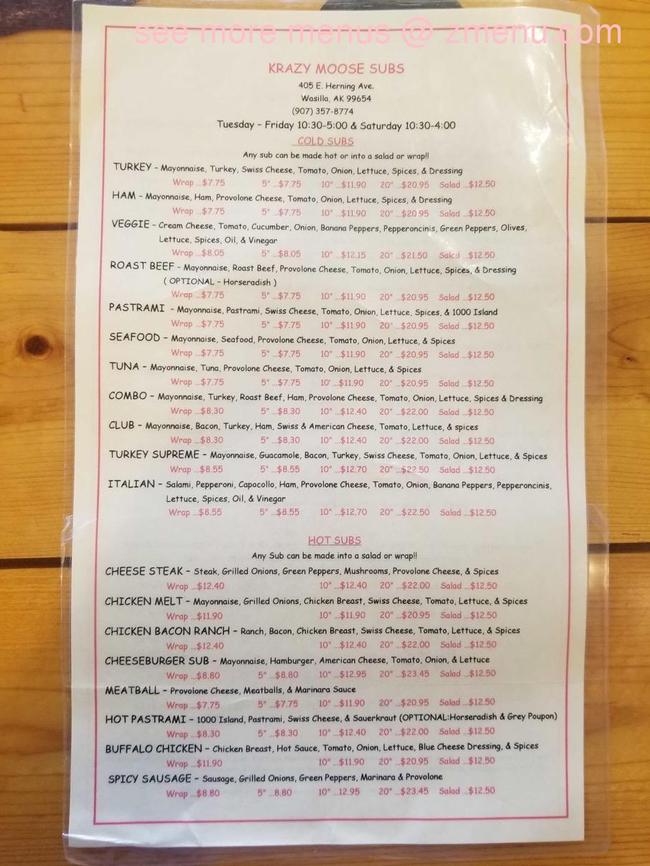 see more menus @ zmenu.com
KRAZY MOOSE SUBS
405 E. Herning Ave.
Wasilla, AK 99654
(907) 357-8774
Tuesday - Friday 10:30-5:00 & Saturday 10:30-4:00
COLD SUBS
Any sub can be made hot or into a salad or wrap!!
TURKEY - Mayonnaise, Turkey, Swiss Cheese, Tomato, Onion, Lettuce, Spices, & Dressing
Wrap ...$7.75 5" ...$7.75 10" ...$11.90 20" ...$20.95 Salad ...$12.50
HAM - Mayonnaise, Ham, Provolone Cheese, Tomato, Onion, Lettuce, Spices, & Dressing
Wrap ...$7.75 5" ...$7.75 10" ...$11.90 20" ...$20.95 Salad ...$12.50
VEGGIE - Cream Cheese, Tomato, Cucumber, Onion, Banana Peppers, Pepperoncinis, Green Peppers, Olives,
Lettuce, Spices, Oil, & Vinegar
Wrap ...$8.05 5" ...$8.05 10" ...$12.15 20" ...$21.50 Salad ...$12.50
ROAST BEEF - Mayonnaise, Roast Beef, Provolone Cheese, Tomato, Onion, Lettuce, Spices, & Dressing
( OPTIONAL - Horseradish )
Wrap ...$7.75 5" ...$7.75 10" ...$11.90 20" ...$20.95 Salad ...$12.50
PASTRAMI - Mayonnaise, Pastrami, Swiss Cheese, Tomato, Onion, Lettuce, Spices, & 1000 Island
Wrap ...$7.75 5" ...$7.75 10" ...$11.90 20" ...$20.95 Salad ...$12.50
SEAFOOD - Mayonnaise, Seafood, Provolone Cheese, Tomato, Onion, Lettuce, & Spices
Wrap ...$7.75 5" ...$7.75 10" ...$11.90 20" ...$20.95 Salad ...$12.50
TUNA - Mayonnaise, Tuna, Provolone Cheese, Tomato, Onion, Lettuce, & Spices
Wrap ...$7.75 5" ...$7.75 10' ...$11.90 20" ...$20.95 Salad ...$12.50
COMBO - Mayonnaise, Turkey, Roast Beef, Ham, Provolone Cheese, Tomato, Onion, Lettuce, Spices & Dressing
Wrap ...$8.30 5" ...$8.30 10" ...$12.40 20" ...$22.00 Salad ...$12.50
CLUB - Mayonnaise, Bacon, Turkey, Ham, Swiss & American Cheese, Tomato, Lettuce, & spices
Wrap ...$8.30 5" ...$8.30 10" ...$12.40 20" ...$22.00 Salad ...$12.50
TURKEY SUPREME - Mayonnaise, Guacamole, Bacon, Turkey, Swiss Cheese, Tomato, Onion, Lettuce, & Spices
Wrap ...$8.55 5" ...$8.55 10" ...$12.70 20" ...$22.50 Salad ...$12.50
ITALIAN - Salami, Pepperoni, Capocollo, Ham, Provolone Cheese, Tomato, Onion, Banana Peppers, Pepperoncinis,
Lettuce, Spices, Oil, & Vinegar
Wrap ...$8.55 5" ...$8.55 10" ...$12.70 20" ...$22.50 Salad ...$12.50
HOT SUBS
Any Sub can be made into a salad or wrap!!
CHEESE STEAK - Steak, Grilled Onions, Green Peppers, Mushrooms, Provolone Cheese, & Spices
Wrap ...$12.40 10" ...$12.40 20" ...$22.00 Salad ...$12.50
CHICKEN MELT - Mayonnaise, Grilled Onions, Chicken Breast, Swiss Cheese, Tomato, Lettuce, & Spices
Wrap ...$11.90 10" ...$11.90 20" ...$20.95 Salad ...$12.50
CHICKEN BACON RANCH - Ranch, Bacon, Chicken Breast, Swiss Cheese, Tomato, Lettuce, & Spices
Wrap ...$12.40 10" ...$12.40 20" ...$22.00 Salad ...$12.50
CHEESEBURGER SUB - Mayonnaise, Hamburger, American Cheese, Tomato, Onion, & Lettuce
Wrap ...$8.80 5" ...$8.80 10" ...$12.95 20" ...$23.45 Salad ...$12.50
MEATBALL - Provolone Cheese, Meatballs, & Marinara Sauce
Wrap ...$7.75 5" ...$7.75 10" ...$11.90 20" ...$20.95 Salad ...$12.50
HOT PASTRAMI - 1000 Island, Pastrami, Swiss Cheese, & Sauerkraut (OPTIONAL:Horseradish & Grey Poupon)
Wrap ...$8.30 5" ...$8.30 10" ...$12.40 20" ...$22.00 Salad ...$12.50
BUFFALO CHICKEN - Chicken Breast, Hot Sauce, Tomato, Onion, Lettuce, Blue Cheese Dressing, & Spices
Wrap ...$11.90 10" ...$11.90 20" ...$20.95 Salad ...$12.50
SPICY SAUSAGE - Sausage, Grilled Onions, Green Peppers, Marinara & Provolone
Wrap ...$8.80 5" ...8.80 10" ...12.95 20" ...$23.45 Salad ...$12.50